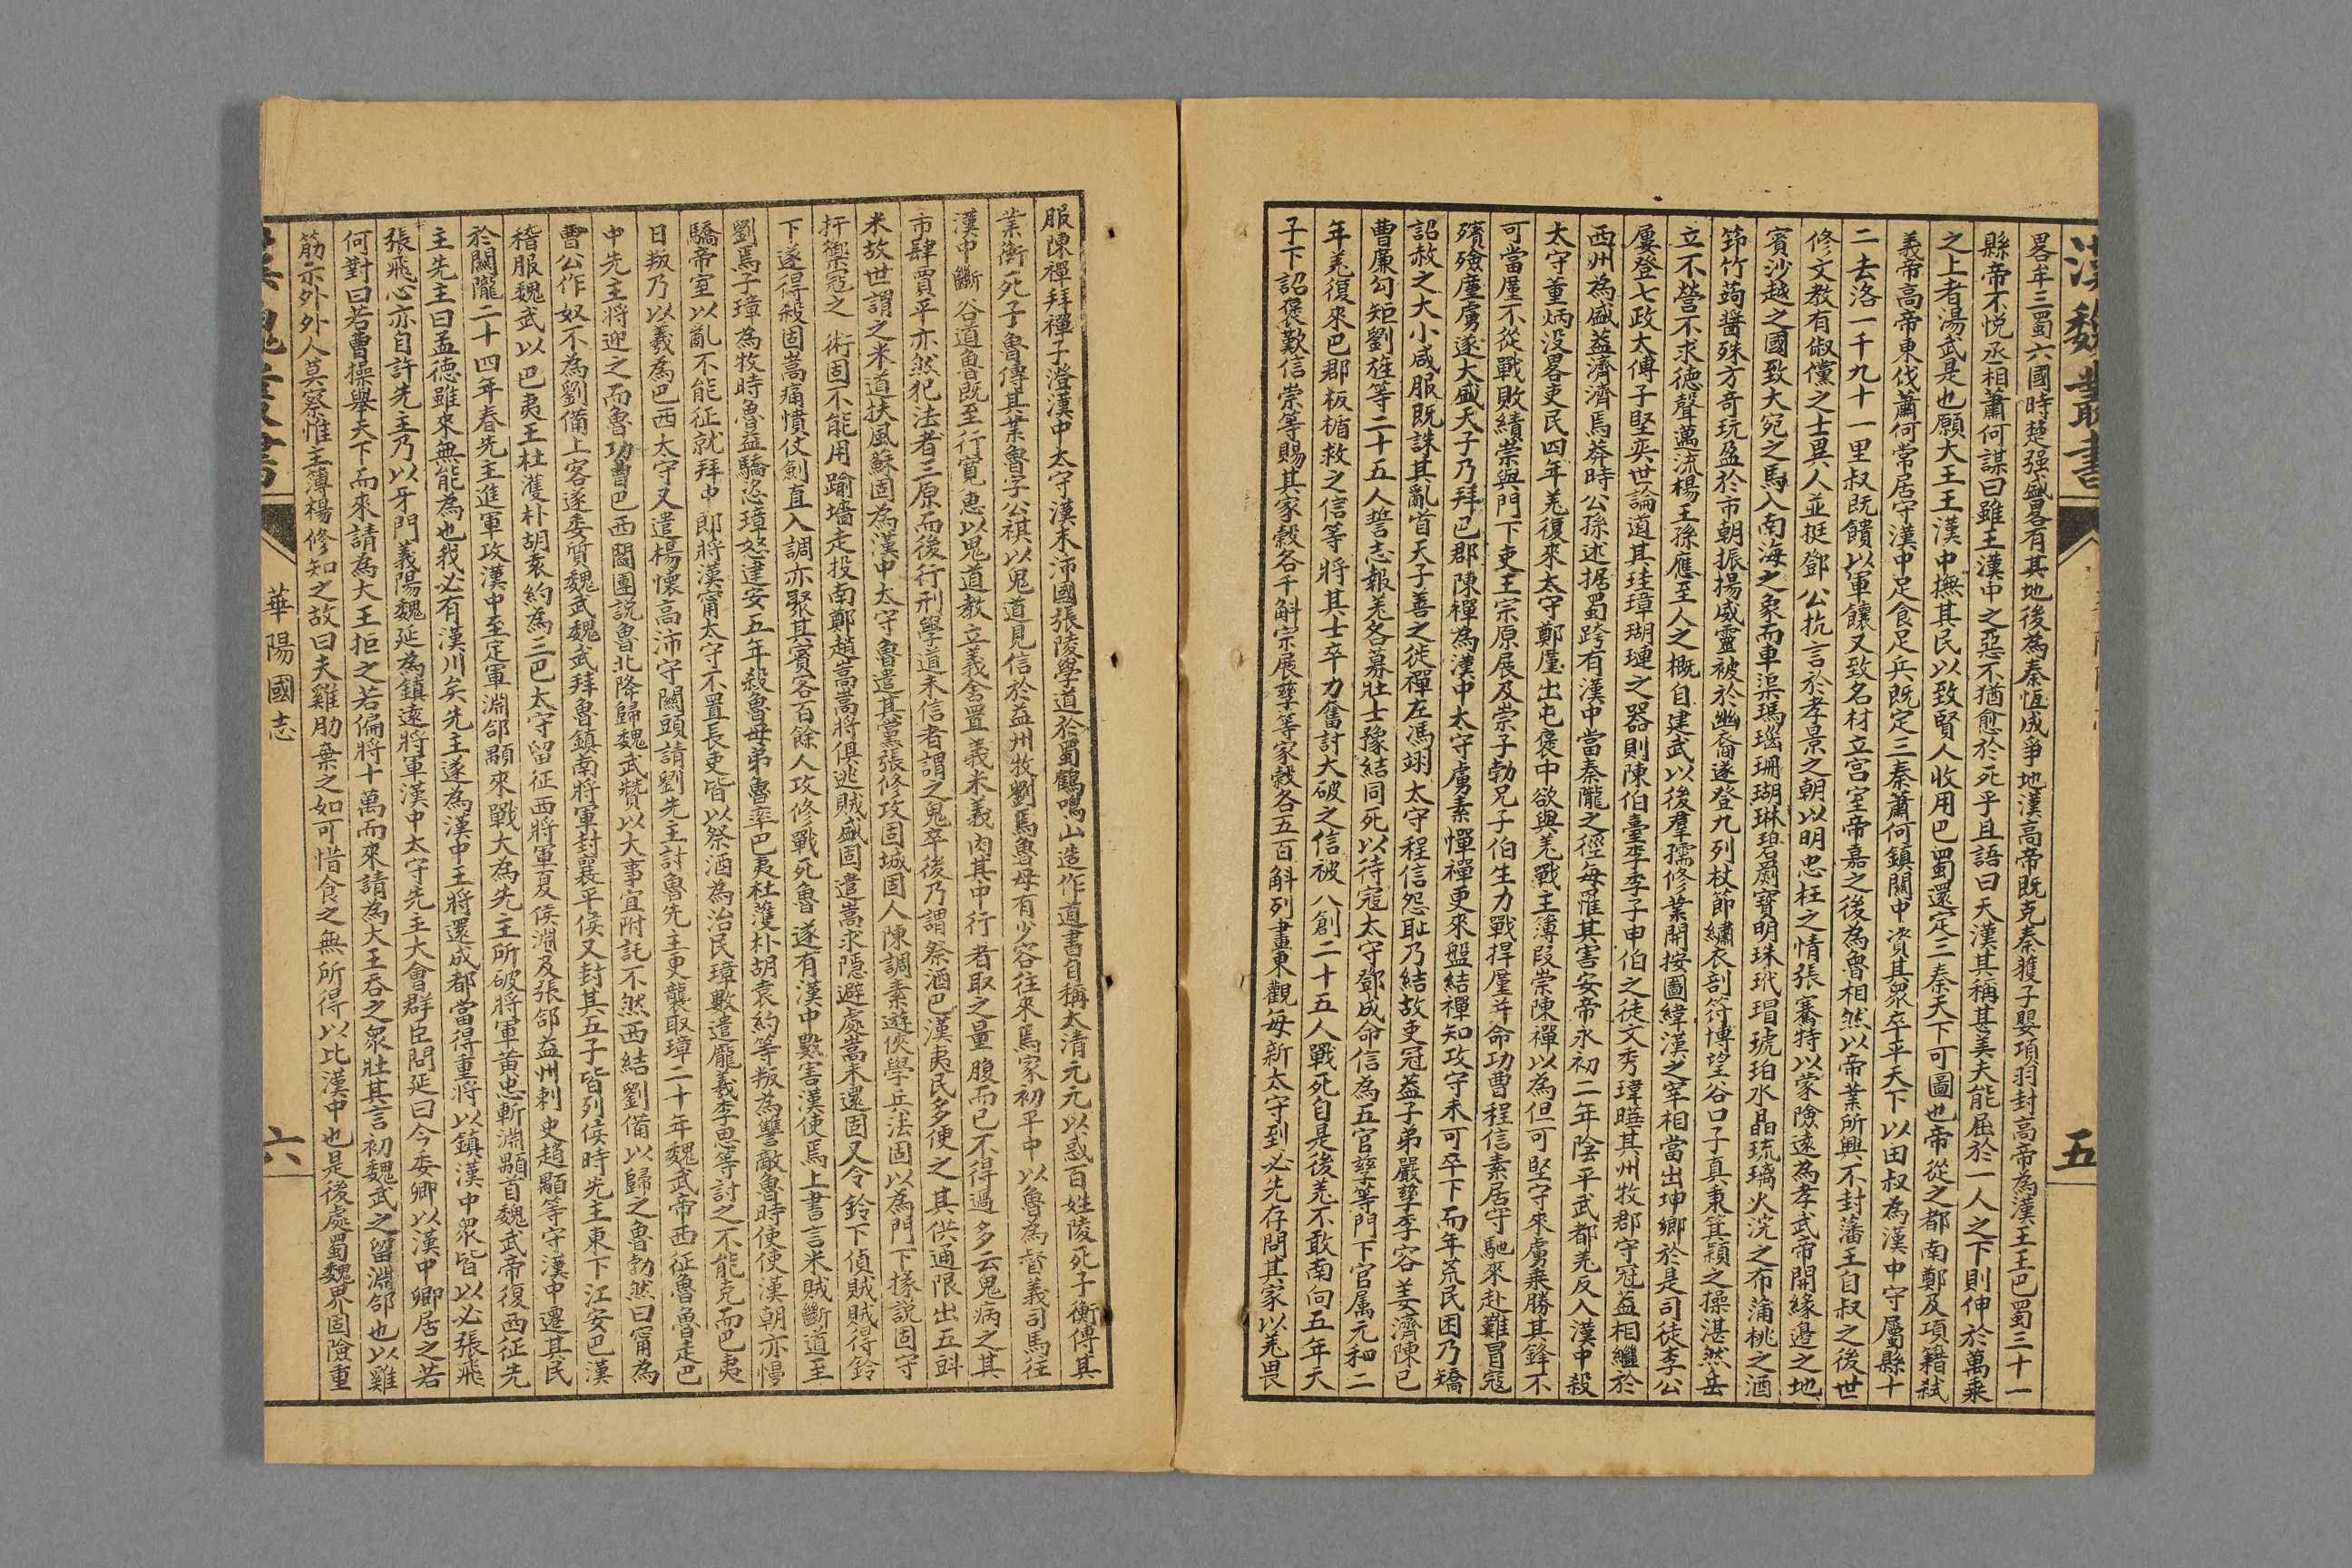 漢魏叢書
五
畧牟三蜀六國時楚强盛畧有其地後為秦恆成爭地漢高帝既克秦獲子嬰項羽封高帝為漢王王巴蜀三十一
縣帝不悅丞相蕭何謀曰雖王漢中之惡不猶愈於死乎且語曰天漢其稱甚美夫能屈於一人之下則伸於萬乘
之上者湯武是也願大王王漢中撫其民以致賢人收用巴蜀還定三秦天下可圖也帝從之都南鄭及項籍弒
義帝高帝東伐蕭何常居守漢中足食足兵既定三秦蕭何鎮關中資其衆卒平天下以田叔為漢中守屬縣十
二去洛一千九十一里叔既饋以軍饟又致名材立宮室帝嘉之後為魯相然以帝業所興不封藩王自叔之後世
修文教有俶儻之士異人並挺鄧公抗言於孝景之朝以明忠枉之情張騫特以蒙險遠為孝武帝開緣邊之地
賓沙越之國致大宛之馬入南海之象而車渠瑪瑙珊瑚琳碧罽寶明珠玳瑁琥珀水晶琉璃火浣之布蒲桃之酒
筇竹蒟醬殊方奇玩盈於市朝振揚威靈被於幽裔遂登九列杖節繡衣剖符博望谷口子真秉箕穎之操湛然岳
立不營不求德聲萬流楊王孫應至人之概自建武以後羣孺修業開按圖緯漢之宰相當出坤鄉於是司徒李公
屢登七政太傅子堅奕世論道其珪璋瑚璉之器則陳伯臺李季子申伯之徒文秀瑋曄其州牧郡守冠蓋相繼於
西州為盛蓋濟濟焉莽時公孫述据蜀跨有漢中當秦隴之徑每罹其害安帝永初二年陰平武都羌反入漢中殺
太守董炳没畧吏民四年羌復來太守鄭廑出屯褒中欲與羌戰主簿段崇陳禪以為但可堅守來虜乘勝其鋒不
可當廑不從戰敗績崇與門下吏王宗原展及崇子勃兄子伯生力戰捍廑并命功曹程信素居守馳來赴難冒寇
殯殮廑虜遂大盛天子乃拜巴郡陳禪為漢中太守虜素憚禪更來盤結禪知攻守未可卒下而年荒民困乃矯
詔赦之大小咸服既誅其亂首天子善之徙禪左馮翊太守程信怨耻乃結故吏冠蓋子弟嚴孳李容姜濟陳巳
曹廉勾矩劉旌等二十五人誓志報羌各募壯士豫結同死以待寇太守鄧成命信為五官孳等門下官属元和二
年羌復來巴郡板楯救之信等將其士卒力奮討大破之信被八創二十五人戰死自是後羌不敢南向五年天
子下詔褒歎信崇等賜其家穀各千斛宗展孳等家穀各五百斛列畫東觀每新太守到必先存問其家以羌畏
服陳禪拜禪子澄漢中太守漢末沛國張陵學道於蜀鶴鳴山造作道書自稱太清元元以惑百姓陵死子衡傳其
業衡死子魯傳其業魯字公祺以鬼道見信於益州牧劉焉魯母有少容往來焉家初平中以魯為督義司馬往
漢中斷谷道魯既至行寬惠以鬼道教立義舍置義米義肉其中行者取之量腹而已不得過多云鬼病之其
市肆賈平亦然犯法者三原而後行刑學道未信者謂之鬼卒後乃謂祭酒巴漢夷民多便之其供通限出五㪷
米故世謂之米道扶風蘇固為漢中太守魯遣其黨張修攻固城固人陳調素遊俠學兵法固以為門下掾說固守
扞禦寇之術固不能用踰墻走投南鄭趙嵩嵩將俱逃賊盛固遣嵩求隱避處嵩未還固又令鈴下偵賊賊得鈴
下遂得殺固嵩痛憤仗劍直入調亦聚其賓客百餘人攻修戰死魯遂有漢中數害漢使焉上書言米賊斷道至
劉焉子璋為牧時魯益驕恣璋怒建安五年殺魯母弟魯率巴夷杜濩朴胡袁約等叛為讐敵魯時使使漢朝亦慢
驕帝室以亂不能征就拜中郎將漢甯太守不置長吏皆以祭酒為治民璋數遣龐羲李思等討之不能克而巴夷
日叛乃以羲為巴西太守又遣楊懷高沛守關頭請劉先主討魯先主更襲取璋二十年魏武帝西征魯魯走巴
中先主將迎之而魯功曹巴西閻圃説魯北降歸魏武贊以大事宜附託不然西結劉備以歸之魯勃然曰甯為
曹公作奴不為劉備上客遂委質魏武魏武拜魯鎮南將軍封襄平侯又封其五子皆列侯時先主東下江安巴漢
稽服魏武以巴夷王杜濩朴胡袁約為三巴太守留征西將軍夏侯淵及張郃益州刺史趙顒等守漢中遷其民
於關隴二十四年春先主進軍攻漢中至定軍淵郃顒來戰大為先主所破將軍黃忠斬淵顒首魏武帝復西征先
主先主曰孟德雖來無能為也我必有漢川矣先主遂為漢中王將還成都當得重將以鎮漢中衆皆以必張飛
張飛心亦自許先主乃以牙門義陽魏延為鎮遠將軍漢中太守先主大會群臣問延曰今委卿以漢中卿居之若
何對曰若曹操舉天下而來請為大王拒之若偏將十萬而來請為大王吞之衆壯其言初魏武之留淵郃也以雞
筋示外外人莫察惟主簿楊修知之故曰夫雞肋棄之如可惜食之無所得以比漢中也是後處蜀魏界固險重
漢魏叢書
華陽國志
六